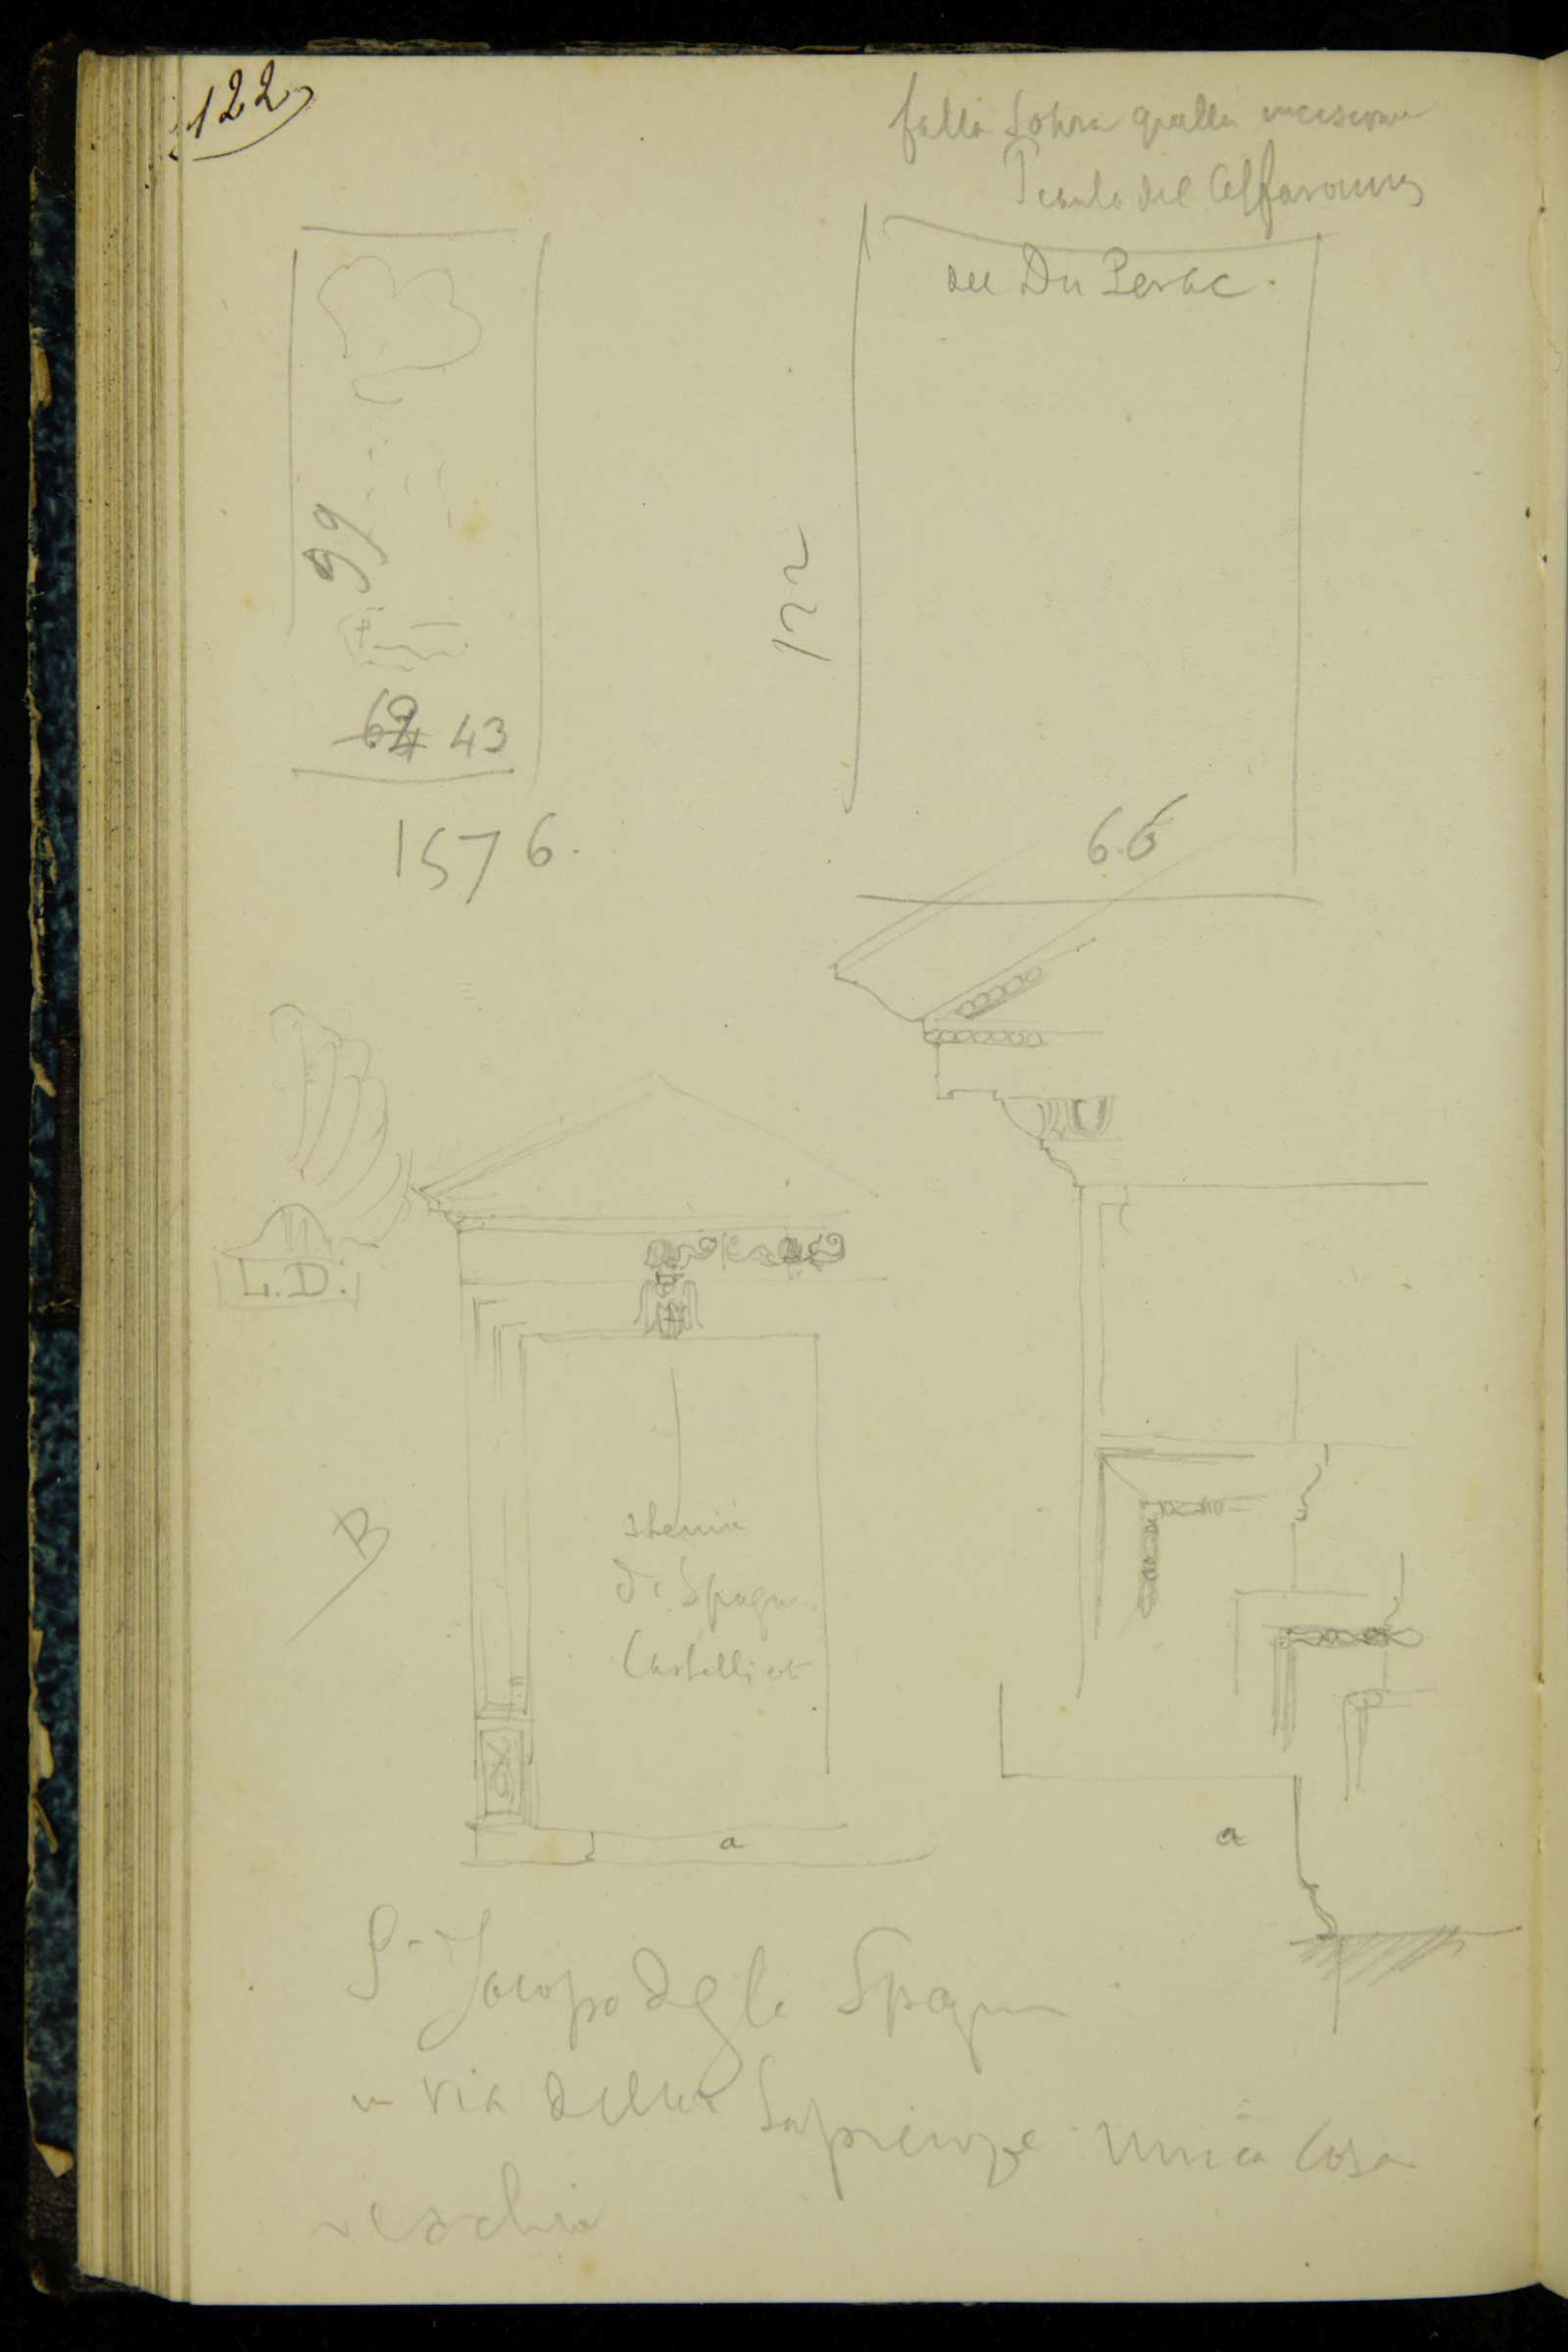 122
fatta sopra quella incisione
del
del Du Perac.
99
122
64 43
1576.
66
L.D.
B
stemma
di Spagna
Castelli et
a
a
S. Jacopo degli Spagn
in via della Sapienza unica cosa
vecchia